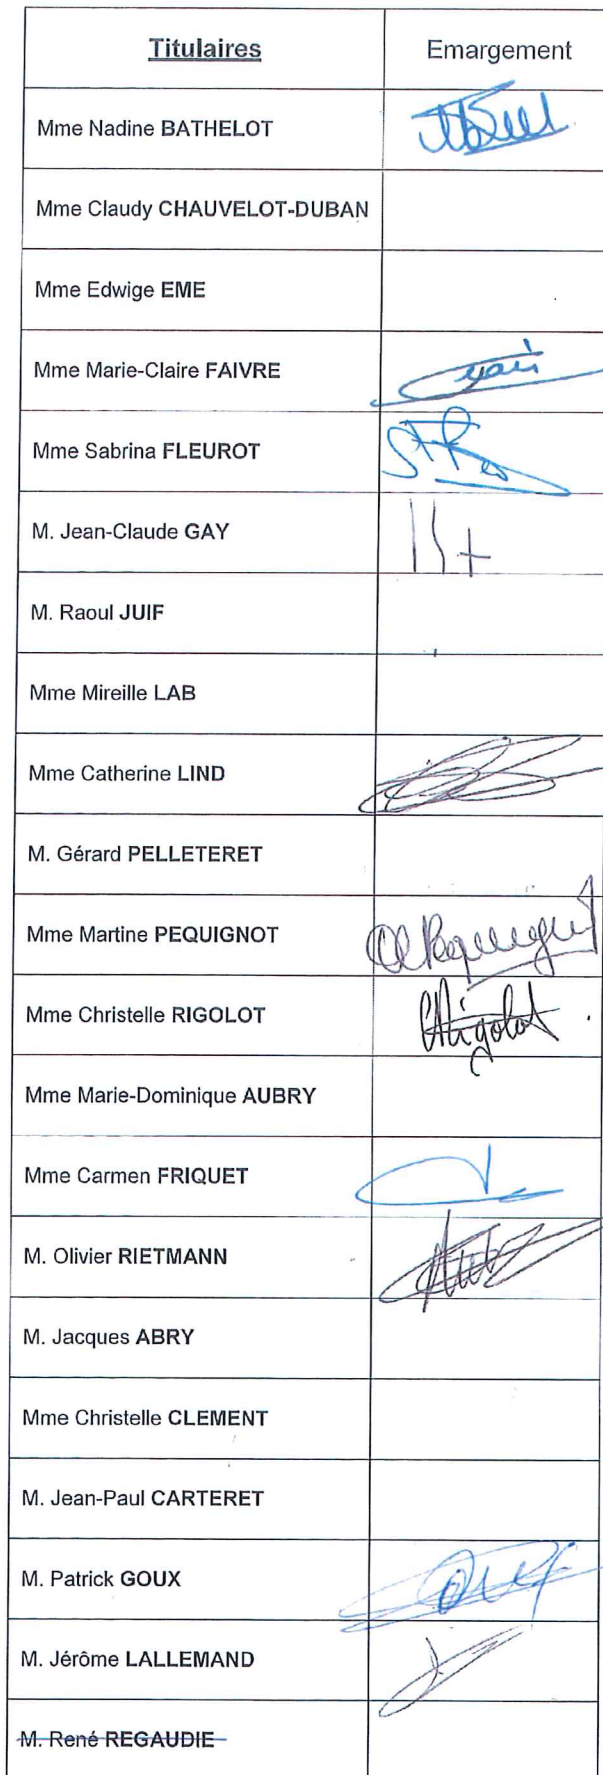 Titulaires Emargement
Mme Nadine BATHELOT
Mme Claudy CHAUVELOT-DUBAN
Mme Edwige EME
Mme Marie-Claire FAIVRE
Mme Sabrina FLEUROT
M. Jean-Claude GAY
M. Raoul JUIF
Mme Mireille LAB
Mme Catherine LIND
M. Gérard PELLETERET
Mme Martine PEQUIGNOT
Mme Christelle RIGOLOT
Mme Marie-Dominique AUBRY
Mme Carmen FRIQUET
M. Olivier RIETMANN
M. Jacques ABRY
Mme Christelle CLEMENT
M. Jean-Paul CARTERET
M. Patrick GOUX
M. Jérôme LALLEMAND
M. René REGAUDIE